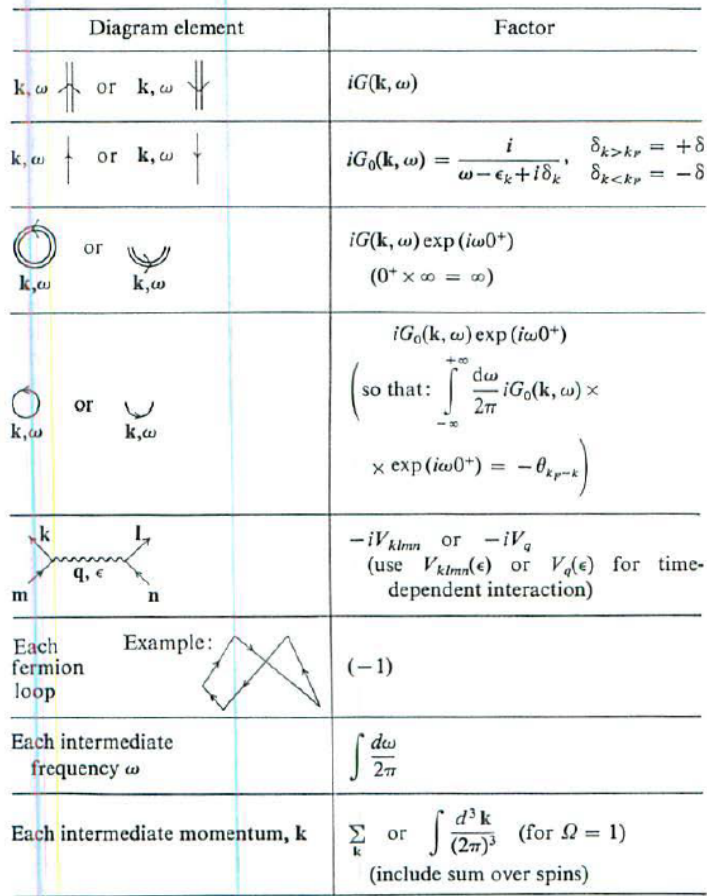 Diagram element Factor
k, ω or k, ω iG(k, ω)
k, ω or k, ω iG₀(k, ω) = i / (ω − ϵₖ + iδₖ), δ_{k>k_F} = +δ
δ_{k<k_F} = −δ
or iG(k, ω) exp (iω0⁺)
k,ω k,ω (0⁺ × ∞ = ∞)
iG₀(k, ω) exp (iω0⁺)
(so that: ∫_{−∞}^{+∞} dω/2π iG₀(k, ω) ×
or
k,ω k,ω
× exp (iω0⁺) = −θ_{k_F−k})
k l −iV_{klmn} or −iV_q
q, ϵ (use V_{klmn}(ϵ) or V_q(ϵ) for time-
m n dependent interaction)
Each Example:
fermion (−1)
loop
Each intermediate
frequency ω ∫ dω/2π
Each intermediate momentum, k ∑_k or ∫ d³k/(2π)³ (for Ω = 1)
(include sum over spins)